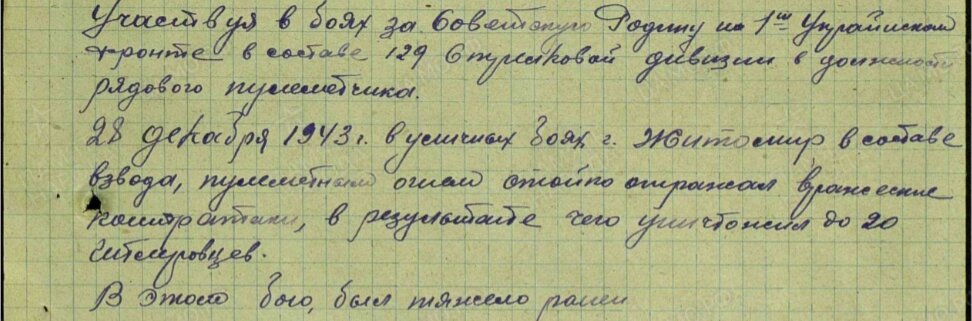 Участвуя в боях за Советскую Родину на 1ом Украинском
фронте в составе 129 Стрелковой дивизии в должности
рядового пулеметчика.
28 декабря 1943 г. в уличных боях г. Житомир в составе
взвода, пулеметным огнем стойко отражал вражеские
контратаки, в результате чего уничтожил до 20
гитлеровцев.
В этом бою, был тяжело ранен